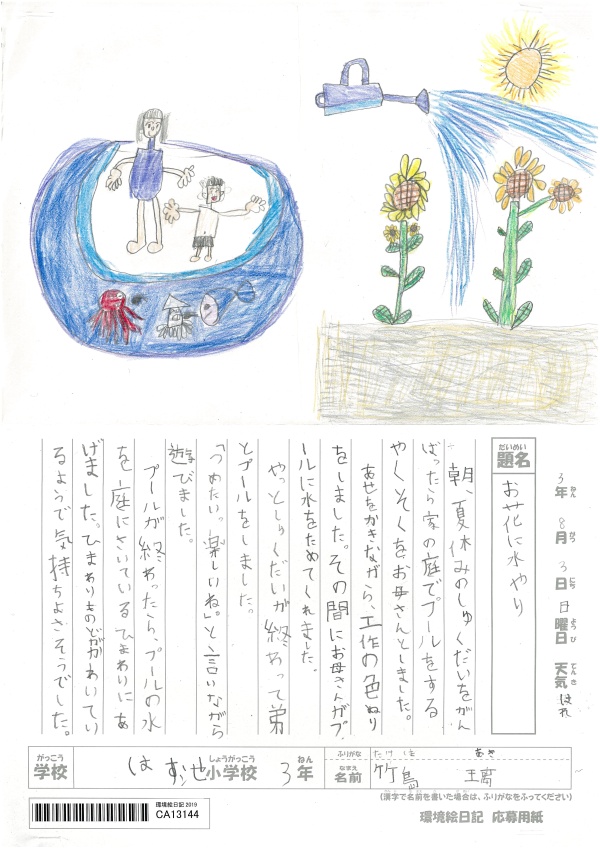 3年ねん 8月がつ 3日にち 日曜日ようび 天気てんき はれ
題名だいめい お花に水やり
朝、夏休みのしゅくだいをがん
ばったら家の庭でプールをする
やくそくをお母さんとしました。
あせをかきながら、工作の色ぬり
をしました。その間にお母さんがプ
ールに水をためてくれました。
やっとしゅくだいが終わって弟
とプールをしました。
「つめたい。楽しいね。」と言いながら
遊びました。
プールが終わったら、プールの水
を庭にさいているひまわりにあ
げました。ひまわりものどがかわいてい
るようで気持ちよさそうでした。
がっこう しょうがっこう ねん
学校 小学校 3年
ふりがな
なまえ
名前 竹島
(漢字で名前を書いた場合は、ふりがなをふってください)
環境絵日記 2019
CA13144
環境絵日記 応募用紙